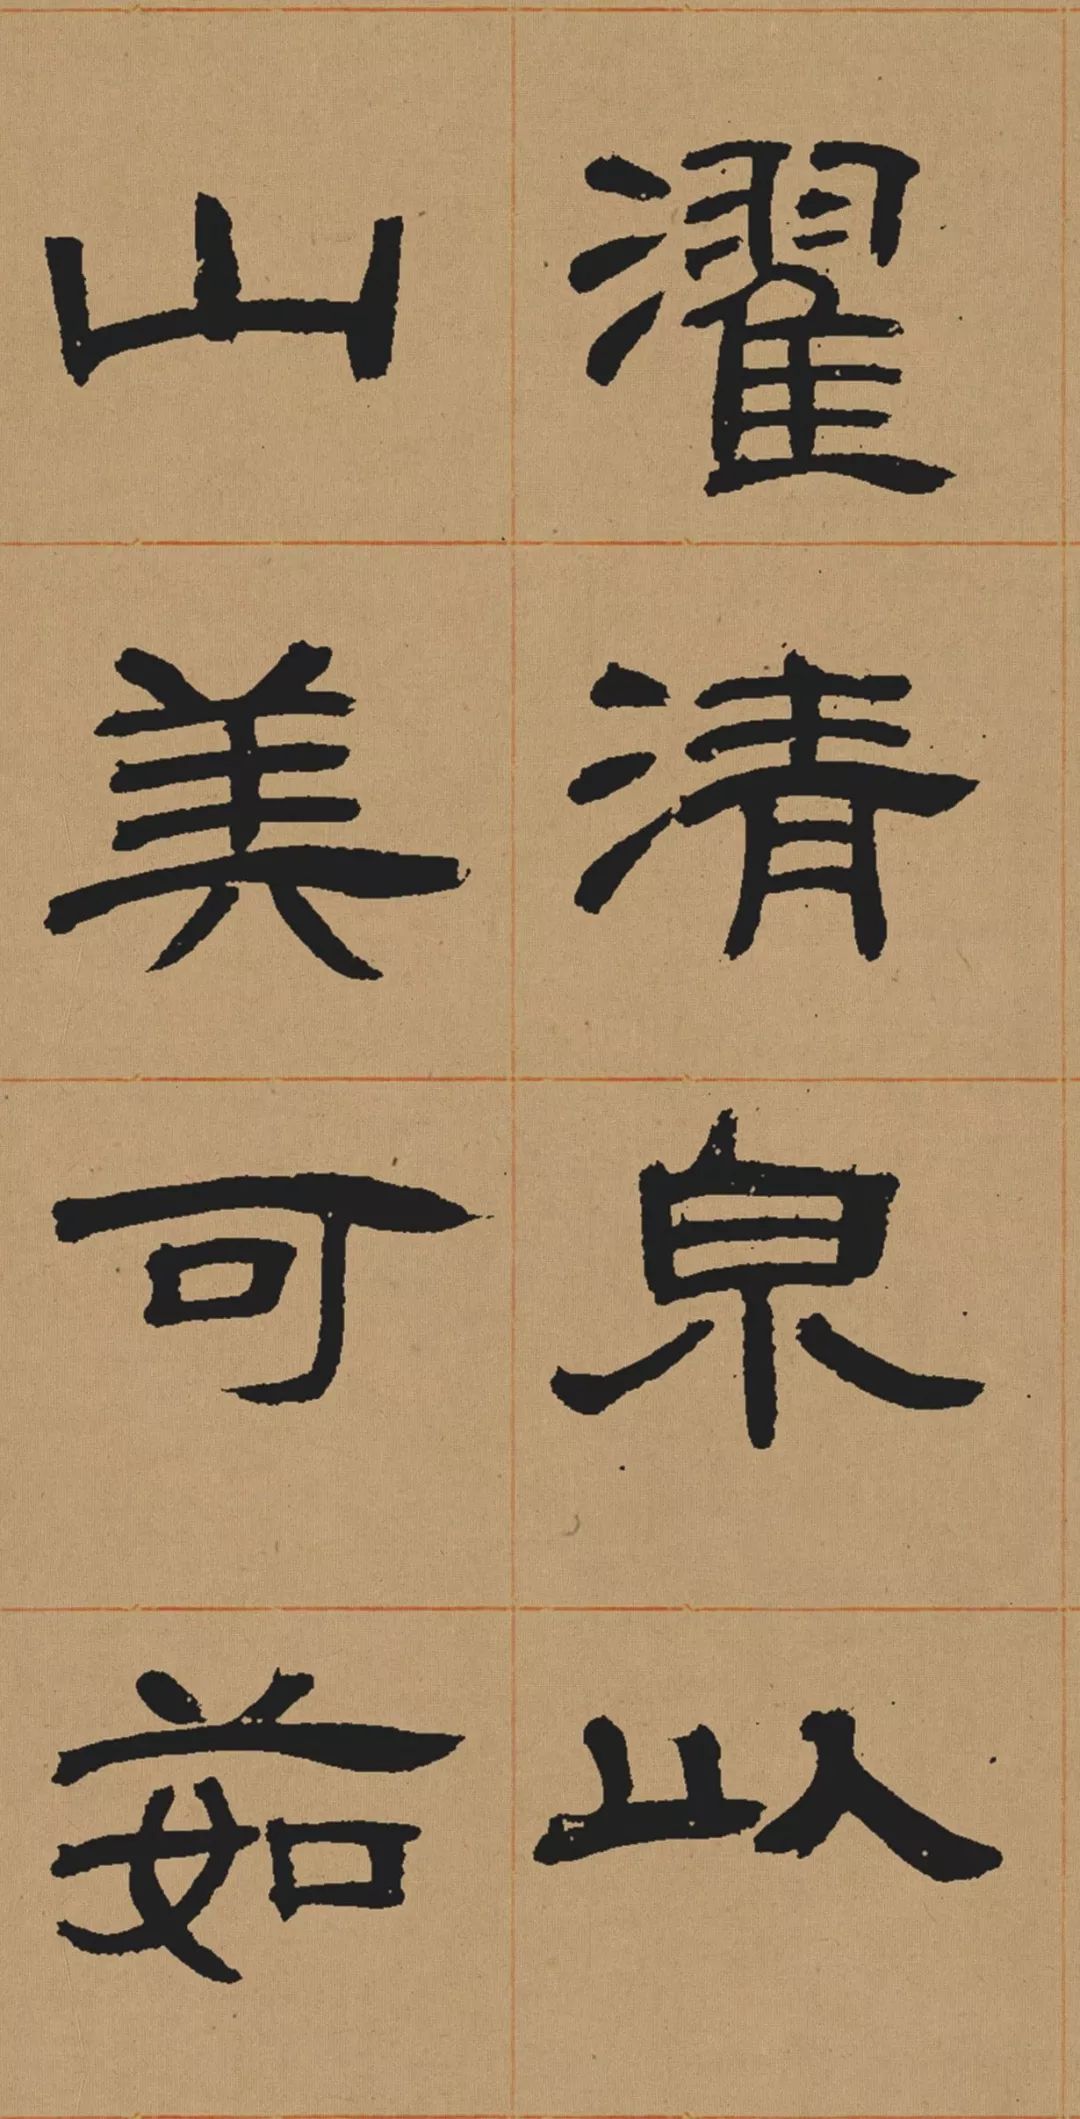 濯清泉以
山美可茹